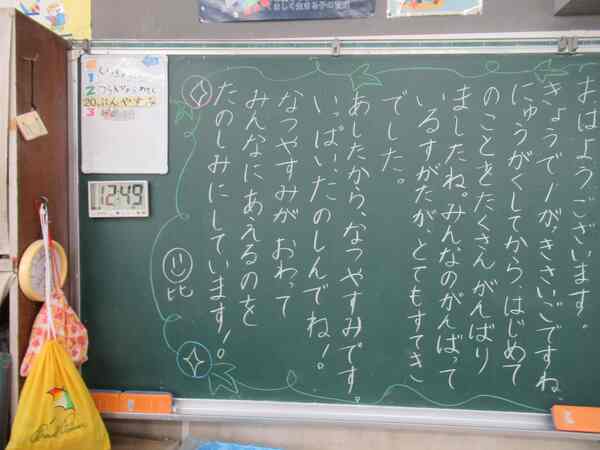 おはようございます。
きょうで1がっきさいごですね
にゅうがくしてから、はじめて
のことをたくさんがんばり
ましたね。みんなのがんばって
いるすがたが、とてもすてき
でした。
あしたから、なつやすみです
いっぱい、たのしんでね!
なつやすみが おわって
みんなにあえるのを
たのしみにしています!
比
1
2
20ぷんやすみ
3
12:49